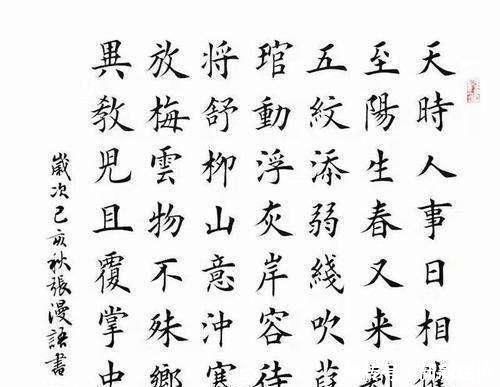 天時人事日相催
至陽生春又来
五紋添弱綫吹葭
琯動浮灰岸容待
将舒柳山意沖寒
放梅雲物不殊鄉
異教児且覆掌中
歲次己亥秋張漫語書